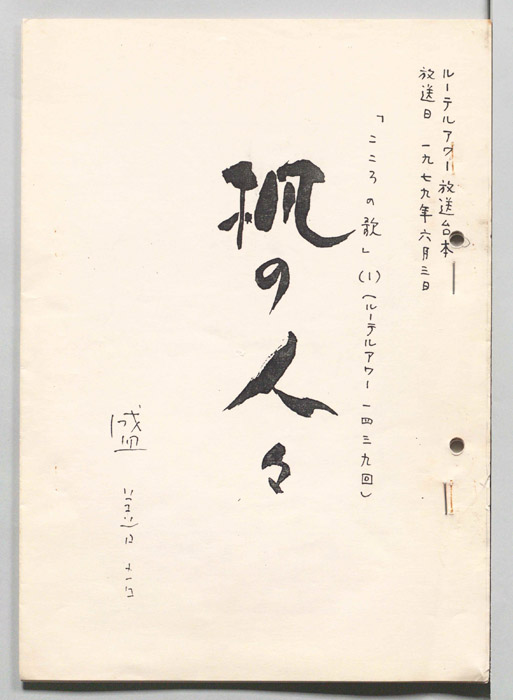 ルーテルアワー放送台本
放送日 一九七九年六月三日
「こころの歌」(1)(ルーテルアワー一四三九回)
の人々
盛